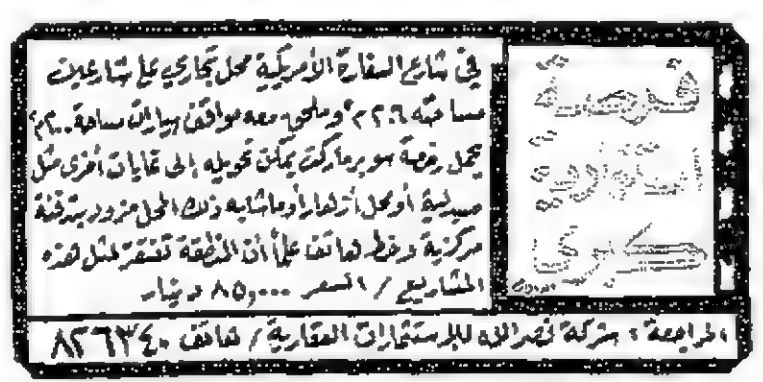 فرصة
استثمارية
كبرى
في شارع السفارة الأمريكية محل تجاري على شارعين
مساحته ٢٠٦م٢ وملحق معه مواقف سيارات مساحة
يحمل رخصة سوبرماركت يمكن تحويله إلى غايات أخرى مثل
صيدلية أو محل أزهار أو ما شابه ذلك المحل مزود بتدفئة
مركزية وخط هاتف علماً أن المنطقة تفتقر لمثل هذه
المشاريع / السعر ٨٥,٠٠٠ دينار
المراجعة : شركة نصر الله للاستثمارات العقارية / هاتف ٨٢٦٣٤٠